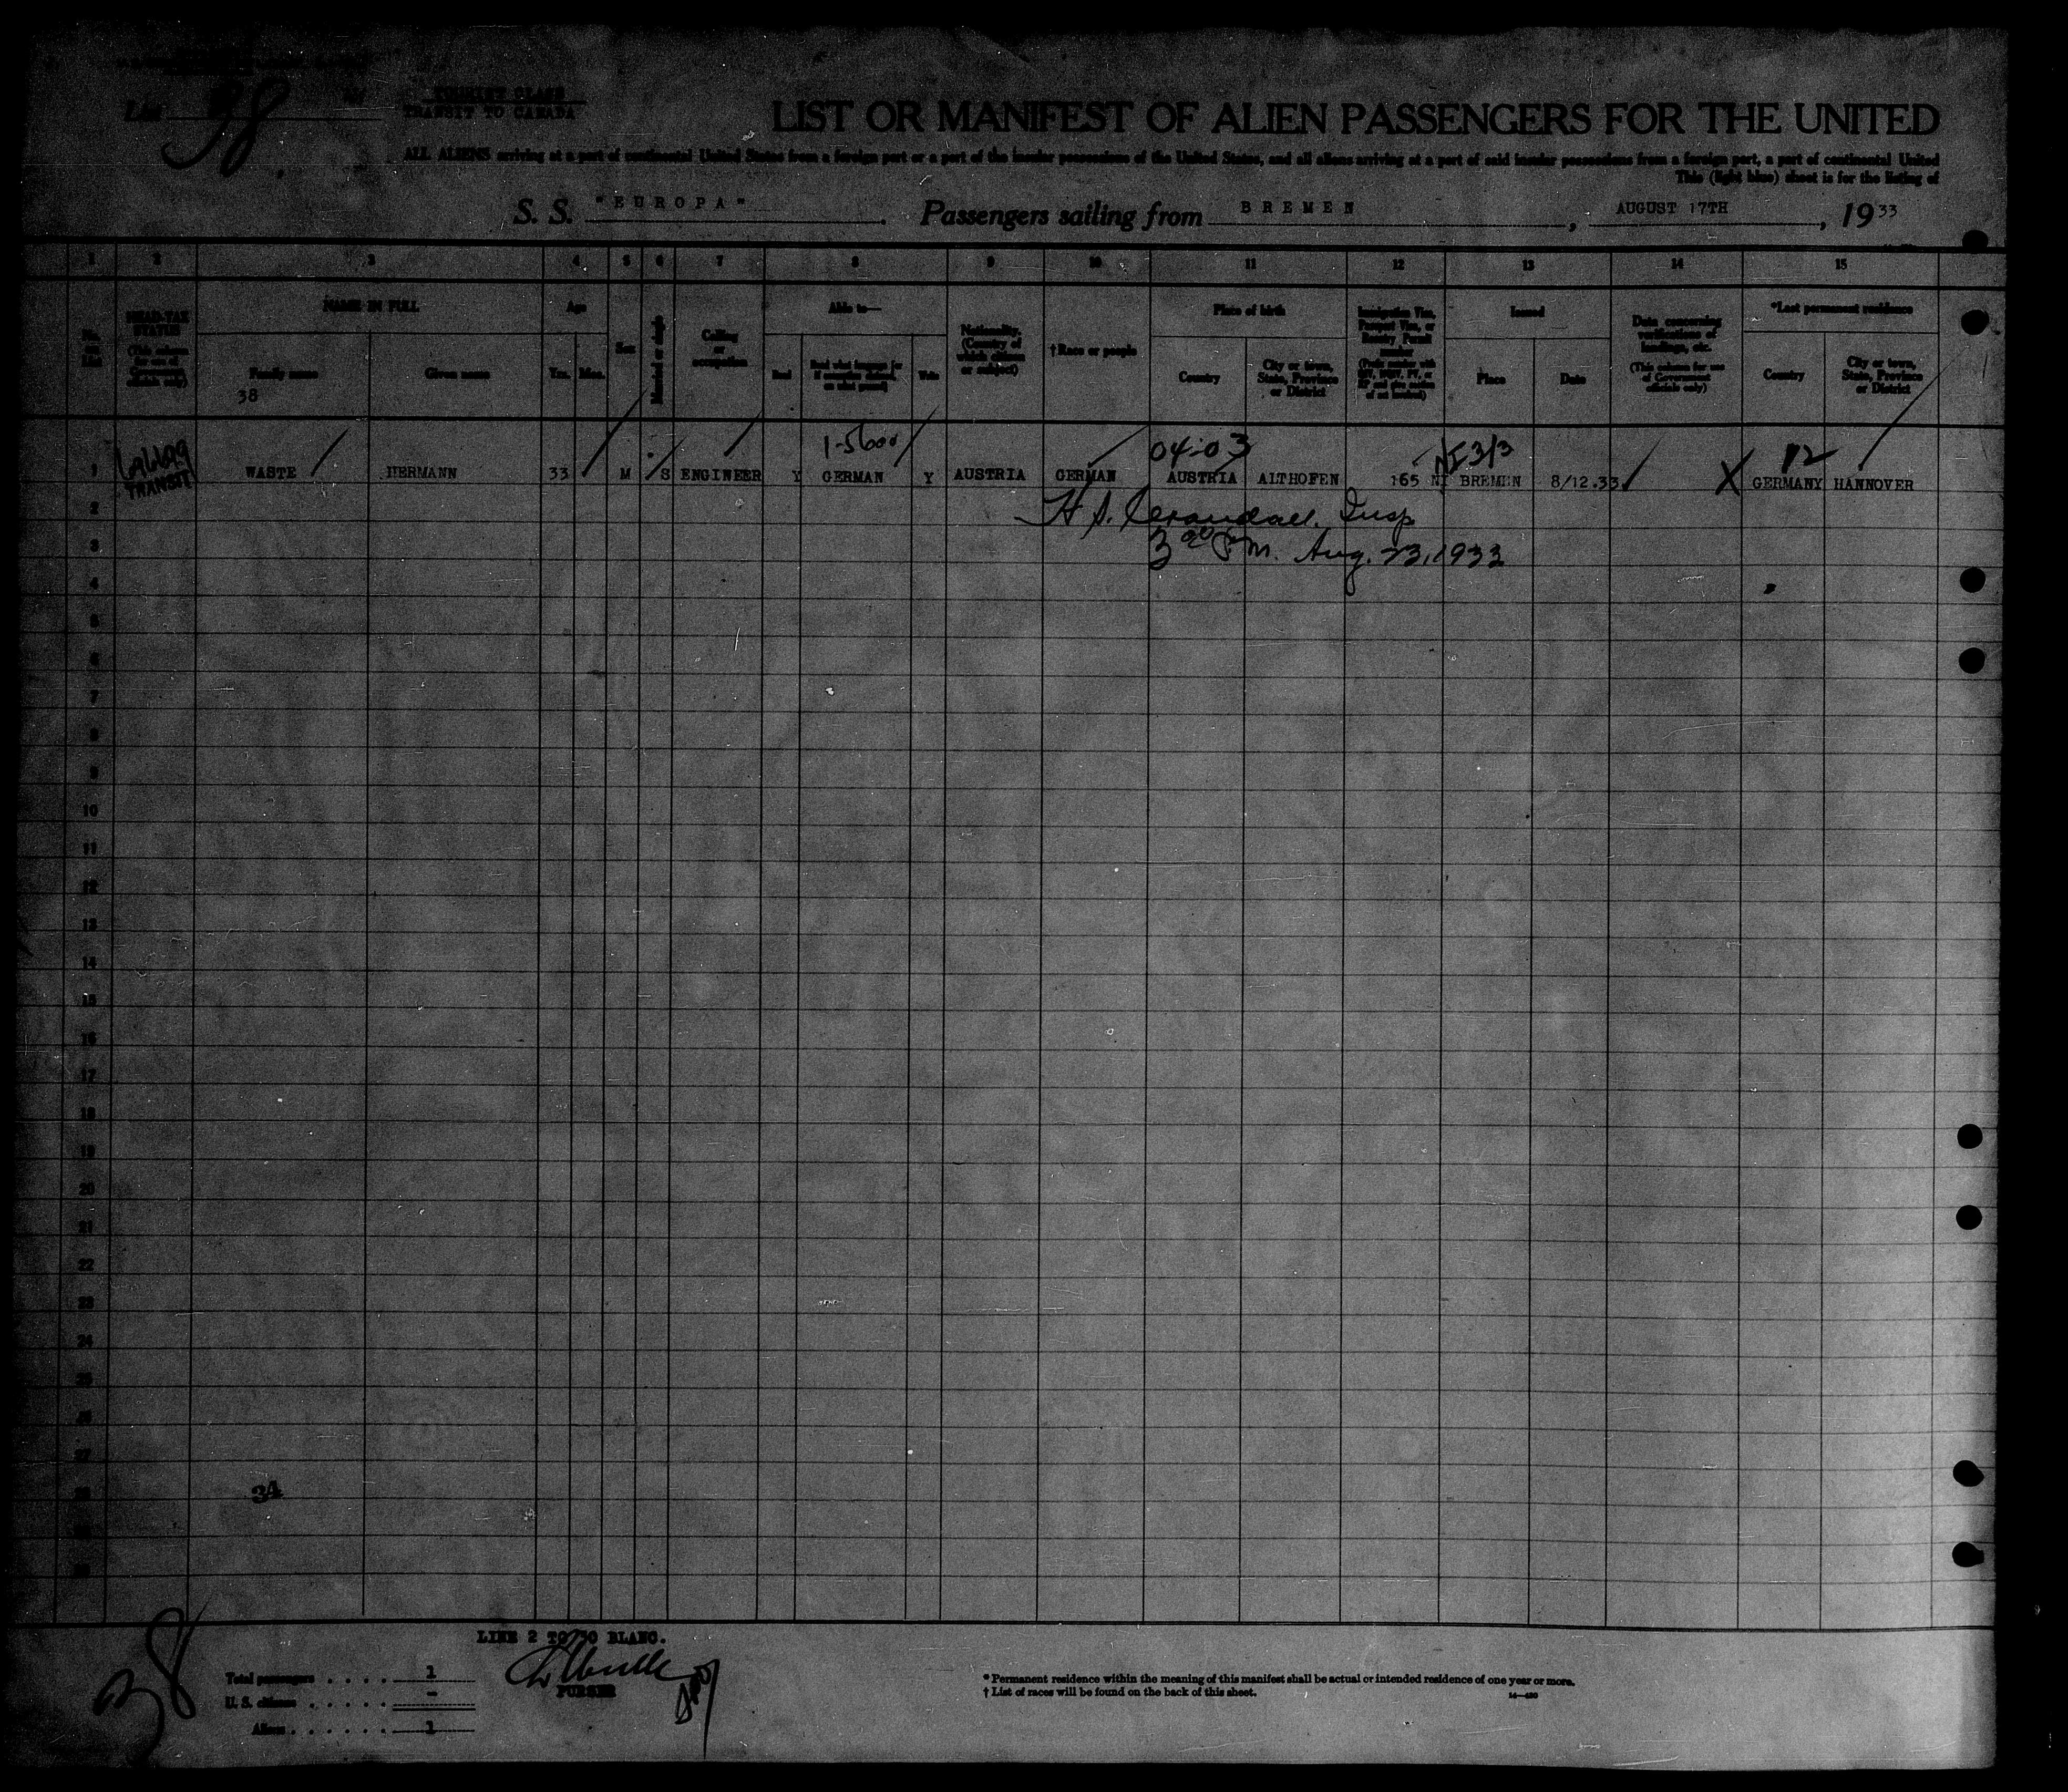 List 38
TOURIST CLASS
TRANSIT TO CANADA
LIST OR MANIFEST OF ALIEN PASSENGERS FOR THE UNITED
ALL ALIENS arriving at a port of continental United States from a foreign port or a port of the insular possessions of the United States, and all aliens arriving at a port of said insular possessions from a foreign port, a port of continental United
This (light blue) sheet is for the listing of
S. S. "EUROPA" Passengers sailing from BREMEN, AUGUST 17TH, 1933
1 2 3 4 5 6 7 8 9 10 11 12 13 14 15
No. on List
HEAD-TAX STATUS (This column for use of Government officials only)
NAME IN FULL
Family name
Given name
38
Age
Yrs. Mos.
Sex
Married or single
Calling or occupation
Able to—
Read
Read what language (or if exemption claimed, on what ground)
Write
Nationality. (Country of which citizen or subject)
†Race or people
Place of birth
Country
City or town, State, Province or District
Immigration Visa, Passport Visa, or Reentry Permit number
Issued
Place
Date
Data concerning verifications of landings, etc.
(This column for use of Government officials only)
*Last permanent residence
Country
City or town, State, Province or District
04-03 NI 3/3 12
1 TRANSIT WASTE HERMANN 33 M S ENGINEER Y GERMAN Y AUSTRIA GERMAN AUSTRIA ALTHOFEN 165 NI BREMEN 8/12.33 X GERMANY HANNOVER
2 Insp
3 3 00 P.M. Aug. 23, 1933
4
5
6
7
8
9
10
11
12
13
14
15
16
17
18
19
20
21
22
23
24
25
26
27
28 34
29
30
LINE 2 TO 30 BLANC.
38
Total passengers . . . . 1
U. S. citizens . . . . . -
Aliens . . . . . . 1
PURSER
* Permanent residence within the meaning of this manifest shall be actual or intended residence of one year or more.
† List of races will be found on the back of this sheet.
14—430